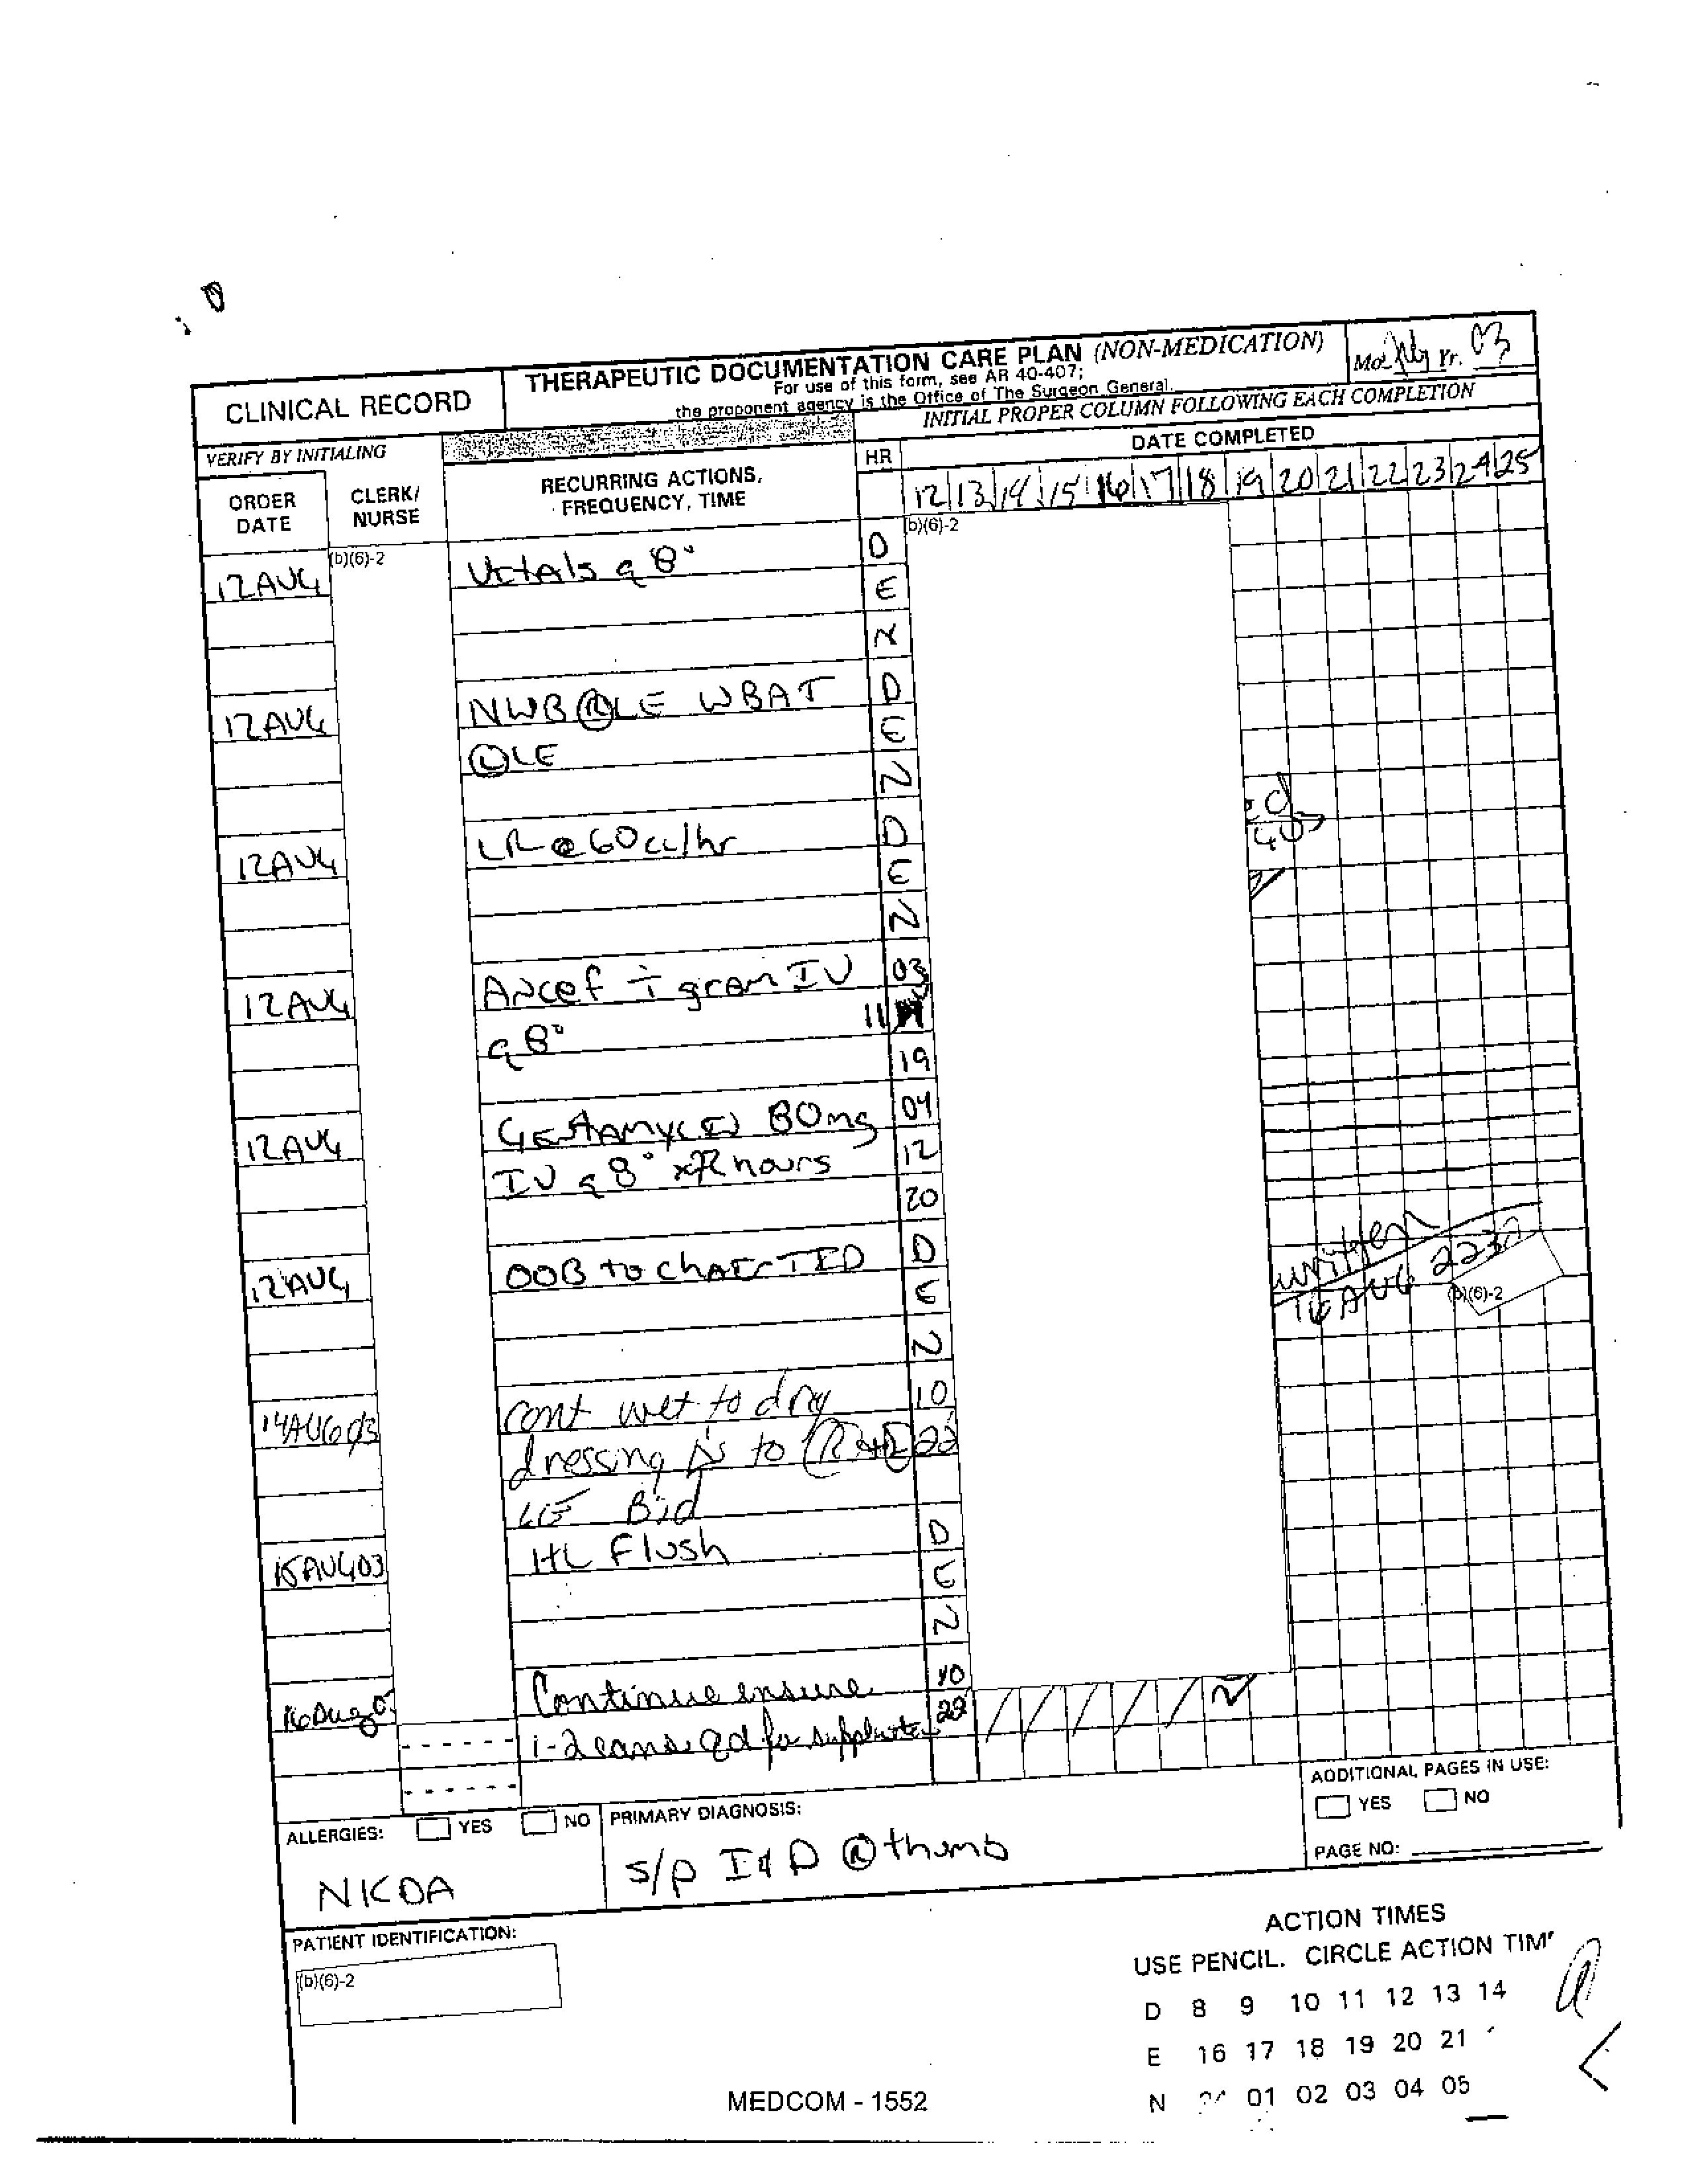 CLINICAL RECORD
THERAPEUTIC DOCUMENTATION CARE PLAN (NON-MEDICATION)
For use of this form, see AR 40-407;
the proponent agency is the Office of The Surgeon General.
Yr. 03
VERIFY BY INITIALING
INITIAL PROPER COLUMN FOLLOWING EACH COMPLETION
ORDER DATE
CLERK/ NURSE
RECURRING ACTIONS, FREQUENCY, TIME
HR
DATE COMPLETED
12 13 14 15 16 17 18 19 20 21 22 23 24 25
(b)(6)-2
(b)(6)-2
12 AUG Vitals q 8° D
E
N
12 AUG NWB Ⓡ LE WBAT D
Ⓛ LE E
N
12 AUG LR @ 60 cc/hr D
E
N
12 AUG Ancef ī gram IV 03
q 8° 11
19
12 AUG GENTAMYCIN 80mg 04
IV q 8° x72 hours 12
20
12 AUG OOB to chair TID D
E
N
written
16 AUG 2230
(b)(6)-2
14AUG03 cont wet to dry 10
dressing Δ's to Ⓡ 22
LE Bid
15AUG03 HL Flush D
E
N
16 Aug 03 Continue ensure 10
1-2 cans qd for 22
ALLERGIES: YES NO
NKDA
PRIMARY DIAGNOSIS:
s/p I & D Ⓡ thumb
ADDITIONAL PAGES IN USE:
YES NO
PAGE NO:
PATIENT IDENTIFICATION:
(b)(6)-2
ACTION TIMES
USE PENCIL. CIRCLE ACTION
D 8 9 10 11 12 13 14
E 16 17 18 19 20 21
N 01 02 03 04 05
MEDCOM - 1552